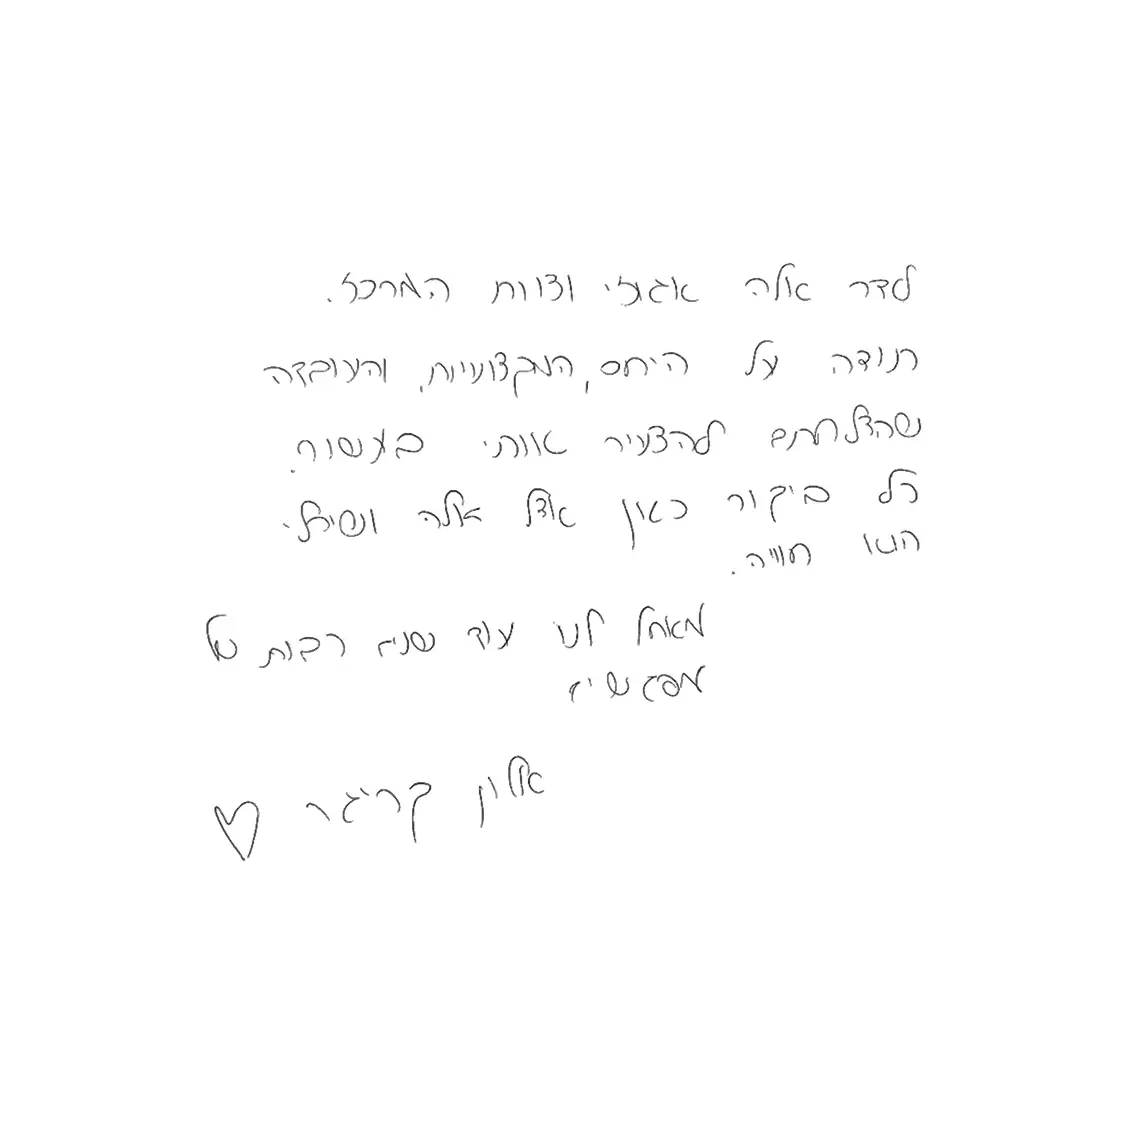 לדר אלה אגוזי וצוות המרכז.
תודה על היחס, המקצועיות, והעובדה
שהצלחתם להצעיר אותי בעשור.
כל ביקור כאן אצל אלה ושירלי
הוא חוויה.
מאחל לנו עוד שנים רבות של
מפגשים
אלון קריגר